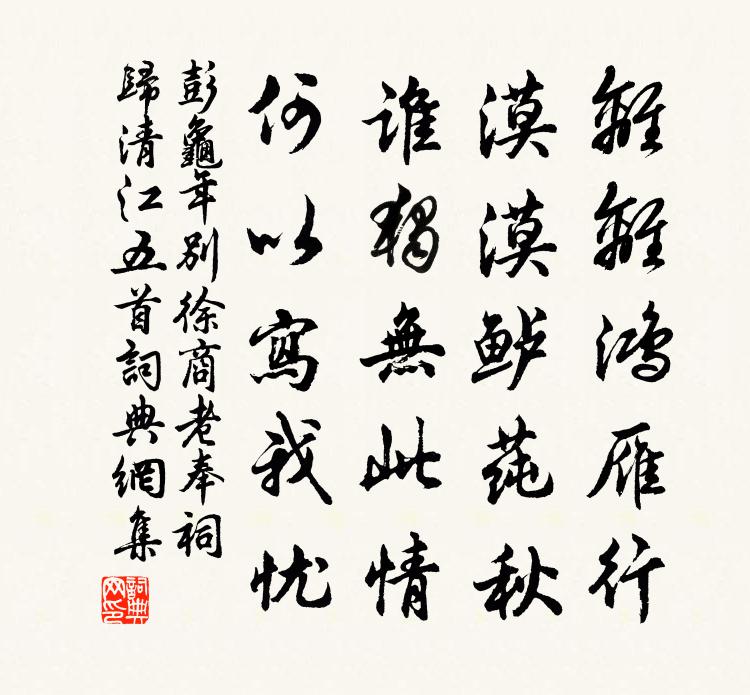 離離鴻雁行
漠漠鲈莼秋
谁獨無此情
何以寫我忧
彭龜年别徐商老奉祠
歸清江五首詞典網集
詞典网印